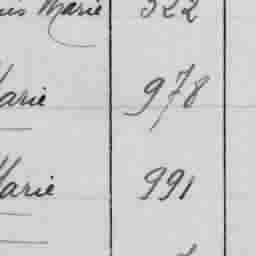 Marie 322
Marie 978
Marie 991